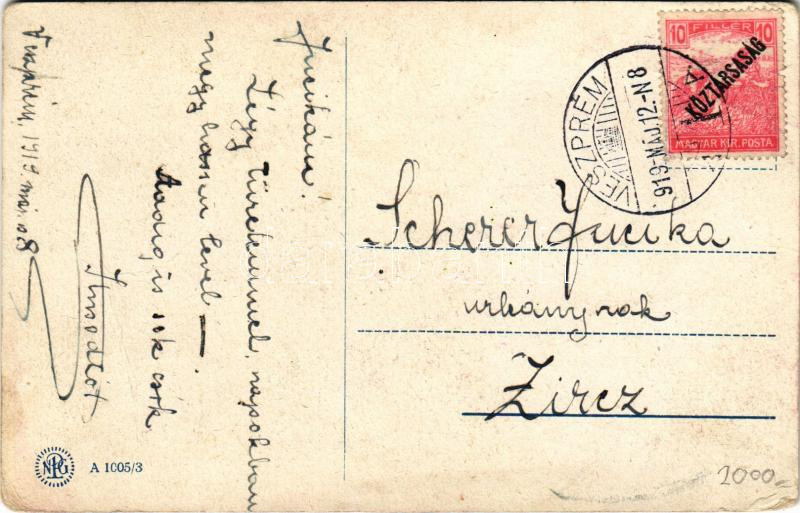 Veszprém, 1919 máj 08
Jucikám!
Légy türelemmel, napokban
megy hosszú levél —
Addig is sok csók
VESZPRÉM
919 MÁJ 12 - N 8
10 FILLÉR 10
KÖZTÁRSASÁG
MAGYAR KIR. POSTA
Scherer Jucika
urleánynak
Zircz
NPG
A 1005/3
2000.-